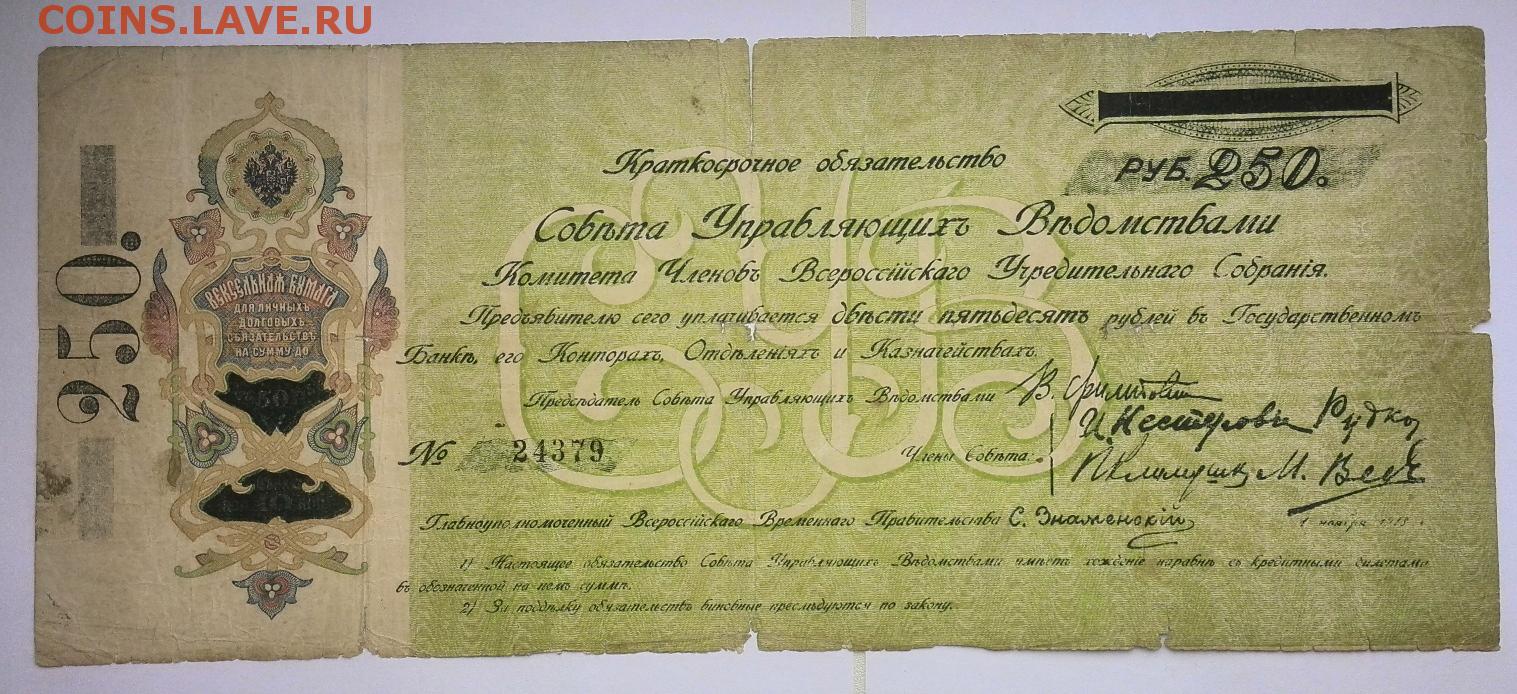 COINS.LAVE.RU
250.
ВЕКСЕЛЬНАЯ БУМАГА
ДЛЯ ЛИЧНЫХЪ
ДОЛГОВЫХЪ
ОБЯЗАТЕЛЬСТВЪ
НА СУММУ ДО
50
10
РУБ. 250.
Краткосрочное обязательство
Совѣта Управляющихъ Вѣдомствами
Комитета Членовъ Всероссійскаго Учредительнаго Собранія.
Предъявителю сего уплачивается двѣсти пятьдесятъ рублей въ Государственномъ
Банкѣ, его Конторахъ, Отдѣленіяхъ и Казначействахъ.
Предсѣдатель Совѣта Управляющихъ Вѣдомствами
И. Нестеровъ Рудко
№ 24379
Члены Совѣта:
М. Веде
Главноуполномоченный Всероссійскаго Временнаго Правительства С. Знаменскій
1 ноября 1918 г.
1) Настоящее обязательство Совѣта Управляющихъ Вѣдомствами имѣетъ хожденіе наравнѣ съ кредитными билетами
въ обозначенной на немъ суммѣ.
2) За поддѣлку обязательствъ виновные преслѣдуются по закону.